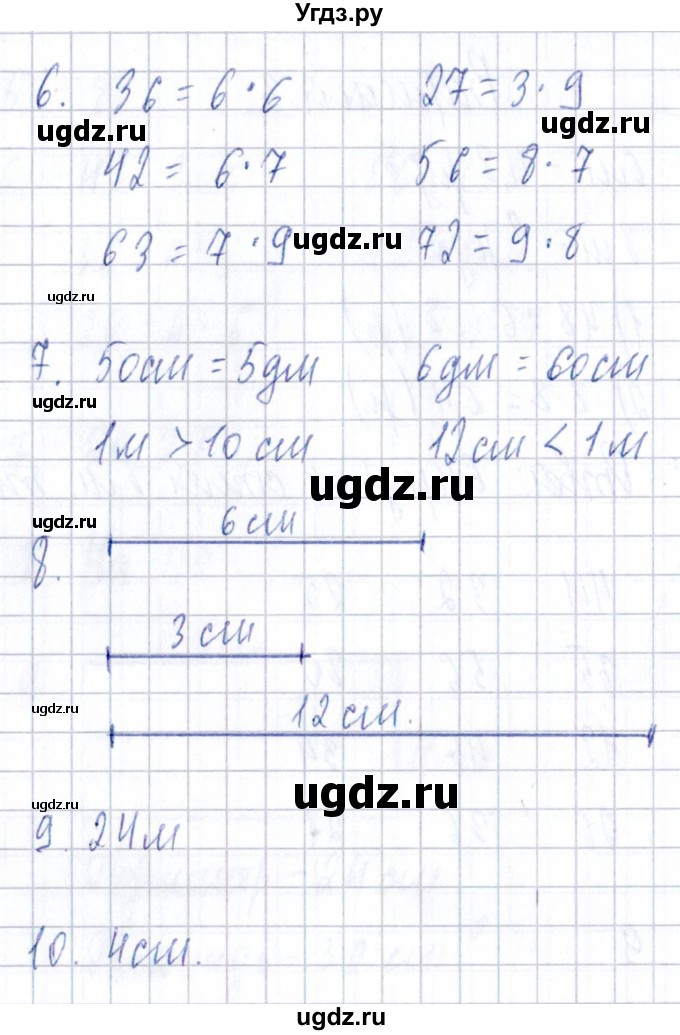 Угдз.ру
6. 36 = 6 · 6 27 = 3 · 9
ugdz.ru ugdz.ru
42 = 6 · 7 56 = 8 · 7
63 = 7 · 9 ugdz.ru 72 = 9 · 8
ugdz.ru
7. 50 см = 5 дм 6 дм = 60 см
ugdz.ru
1 м > 10 см 12 см < 1 м
ugdz.ru
ugdz.ru 6 см
8.
3 см
ugdz.ru 12 см.
ugdz.ru
ugdz.ru
9. 24 м
10. 4 см.
ugdz.ru